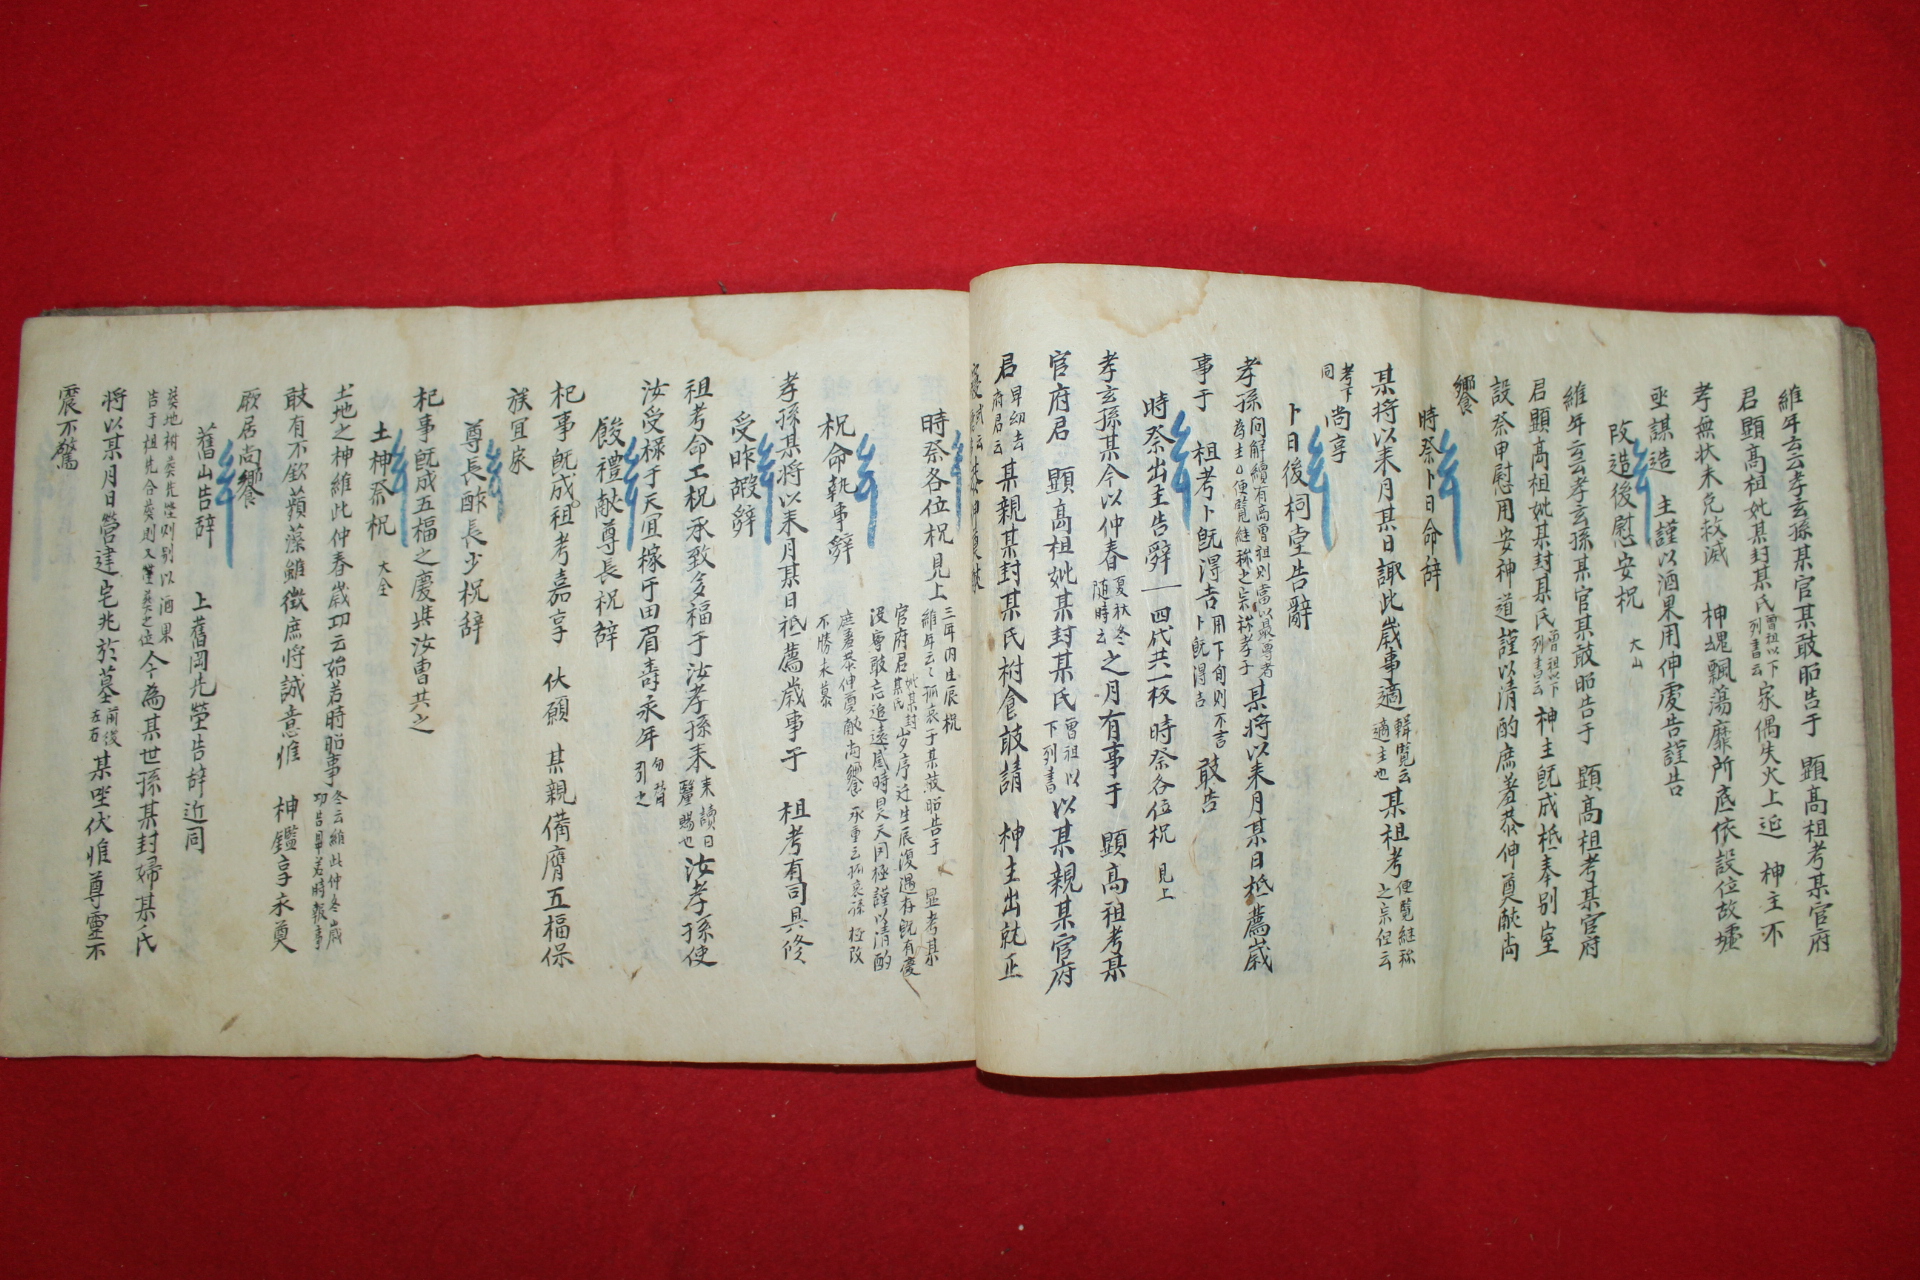 維年云云孝玄孫某官某敢昭告于　顯高祖考某官府
君顯高祖妣某封某氏曾祖以下列書云家偶失火上延　神主不
孝無狀未克救滅　神魂飄蕩靡所底依設位故墟
亟謀造　主謹以酒果用伸虔告謹告
改造後慰安祝　大山
維年云云孝玄孫某官某敢昭告于　顯高祖考某官府
君顯高祖妣某封某氏曾祖以下列書云神主旣成祗奉別室
設祭申慰用安神道謹以清酌庶羞恭伸奠献尚
饗
時祭卜日命辞
某將以来月某日諏此歲事適輯覽云適主也某祖考便覽継祢之宗但云
考下同尚享
卜日後祠堂告辭
孝孫問解續有高曾祖則當以最尊者為主便覽継祢之宗称孝子某將以来月某日祗薦歲
事于　祖考卜旣得吉用下旬則不言卜旣得吉敢告
時祭出主告辭　四代共一板時祭各位祝　見上
孝玄孫某今以仲春夏秋冬随時云之月有事于　顯高祖考某
官府君　顯高祖妣某封某氏曾祖以下列書以某親某官府
君卑幼去府君云某親某封某氏祔食敢請　神主出就正
時祭各位祝見上三年內生辰祝
維年云云孤哀子某敢昭告于　显考某
官府君妣某封某氏岁序迁生辰復遇存旣有慶
沒寧敢忘追遠感時昊天罔極謹以清酌
庶羞恭伸奠献尚饗　承重云孤哀孫　極改
不勝永慕
祝命執事辭
孝孫某將以来月某日祗薦歲事于　祖考有司具修
受胙嘏辭
祖考命工祝承致多福于汝孝孫来来讀曰釐賜也汝孝孫使
汝受祿于天宜稼于田眉壽永年勿替引之
餕禮献尊長祝辞
祀事旣成祖考嘉享　伏願　某親備膺五福保
族宜家
尊長酢長少祝辞
祀事旣成五福之慶與汝曹共之
土神祭祝　大全
土地之神維此仲春歲功云始若時昭事冬云維此仲冬歲功告畢若時報事
敢有不欽蘋藻雖微庶將誠意惟　神鑑享永奠
厥居尚饗
舊山告辞　上舊岡先塋告辞近同
葬地祔葬先塋則別以酒果告于祖先合葬則又
今為某世孫某封婦某氏
將以某月日營建宅兆於墓前後左右某坐伏惟尊靈不
震不驚